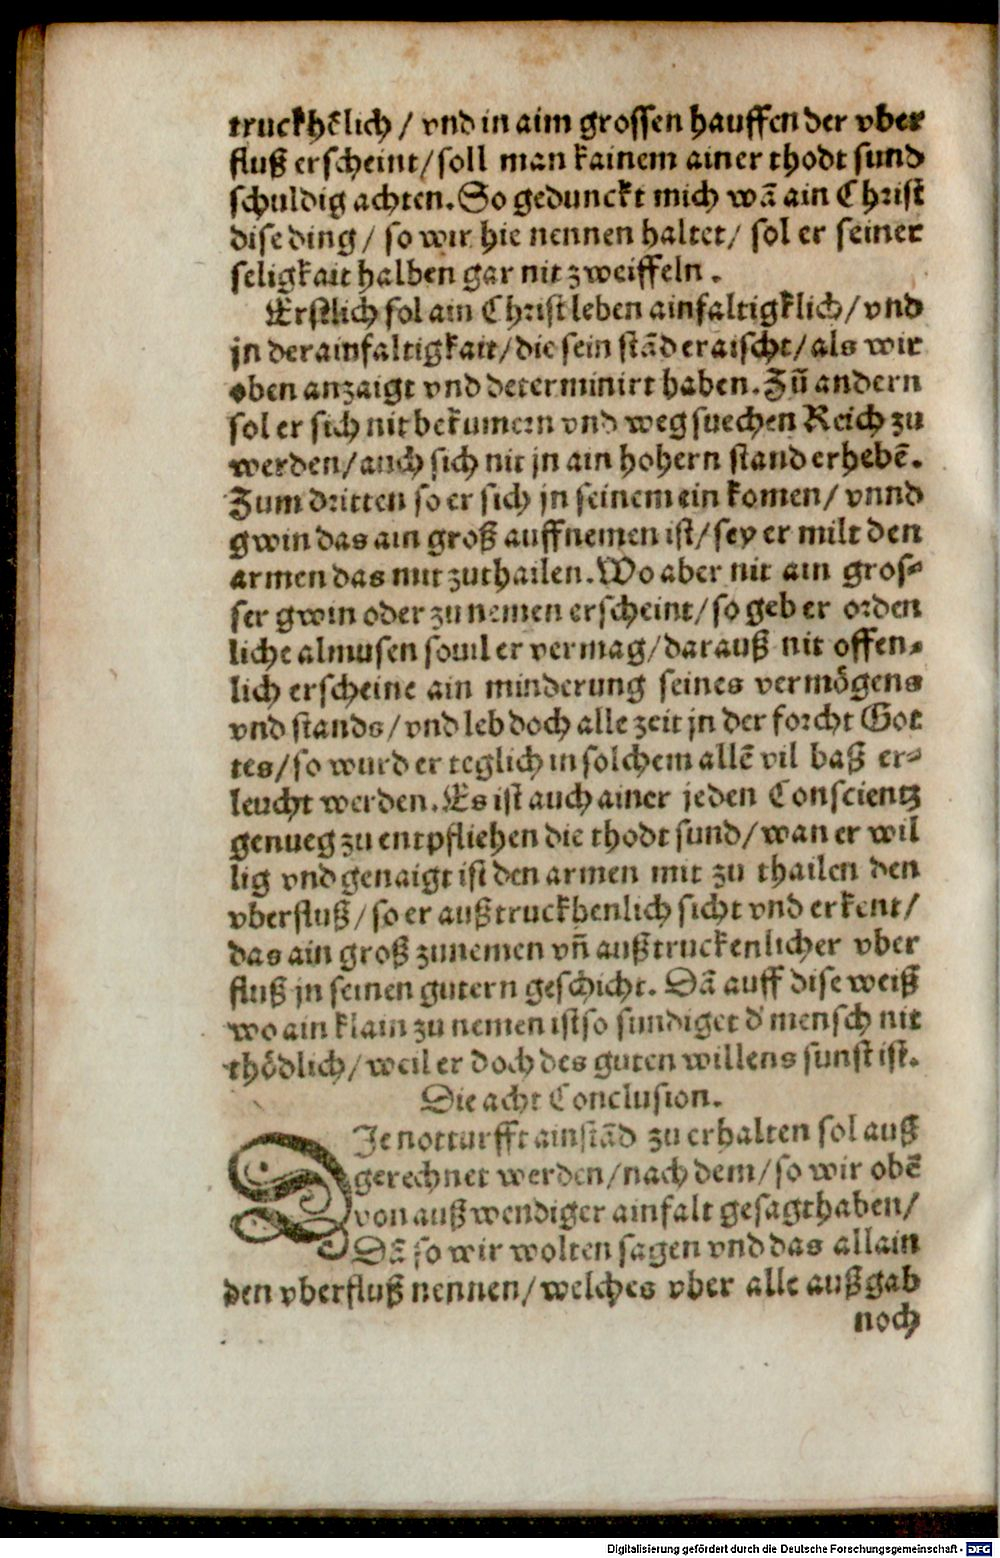 truckhēlich / vnd in aim grossen hauffen der vber
fluß erscheint / soll man kainem ainer thodt sund
schuldig achten. So gedunckt mich wā ain Christ
dise ding / so wir hie nennen haltet / sol er seiner
seligkait halben gar nit zweiffeln.
Erstlich sol ain Christ leben ainfaltigklich / vnd
jn der ainfaltigkait / die sein stād eraischt / als wir
oben anzaigt vnd determinirt haben. Zū andern
sol er sich nit bekumern vnd weg suechen Reich zu
werden / auch sich nit jn ain hohern stand erhebē.
Zum dritten so er sich jn seinem ein komen / vnnd
gwin das ain groß auffnemen ist / sey er milt den
armen das mit zuthailen. Wo aber nit ain gros-
ser gwin oder zu nemen erscheint / so geb er orden
liche almusen souil er vermag / darauß nit offen-
lich erscheine ain minderung seines vermögens
vnd stands / vnd leb doch alle zeit jn der forcht Got
tes / so wurd er teglich in solchem allē vil baß er-
leucht werden. Es ist auch ainer jeden Conscientz
genueg zu entpfliehen die thodt sund / wan er wil
lig vnd genaigt ist den armen mit zu thailen den
vberfluß / so er außtruckhenlich sicht vnd erkent /
das ain groß zunemen vn̄ außtruckenlicher vber
fluß jn seinen gutern geschicht. Dā auff dise weiß
wo ain klain zu nemen ist so sundiget d' mensch nit
thödlich / weil er doch des guten willens sunst ist.
Die acht Conclusion.
DJe notturfft ain stād zu erhalten sol auß
gerechnet werden / nach dem / so wir obē
von außwendiger ainfalt gesagt haben /
Dā so wir wolten sagen vnd das allain
den vberfluß nennen / welches vber alle außgab
noch
Digitalisierung gefördert durch die Deutsche Forschungsgemeinschaft - DFG